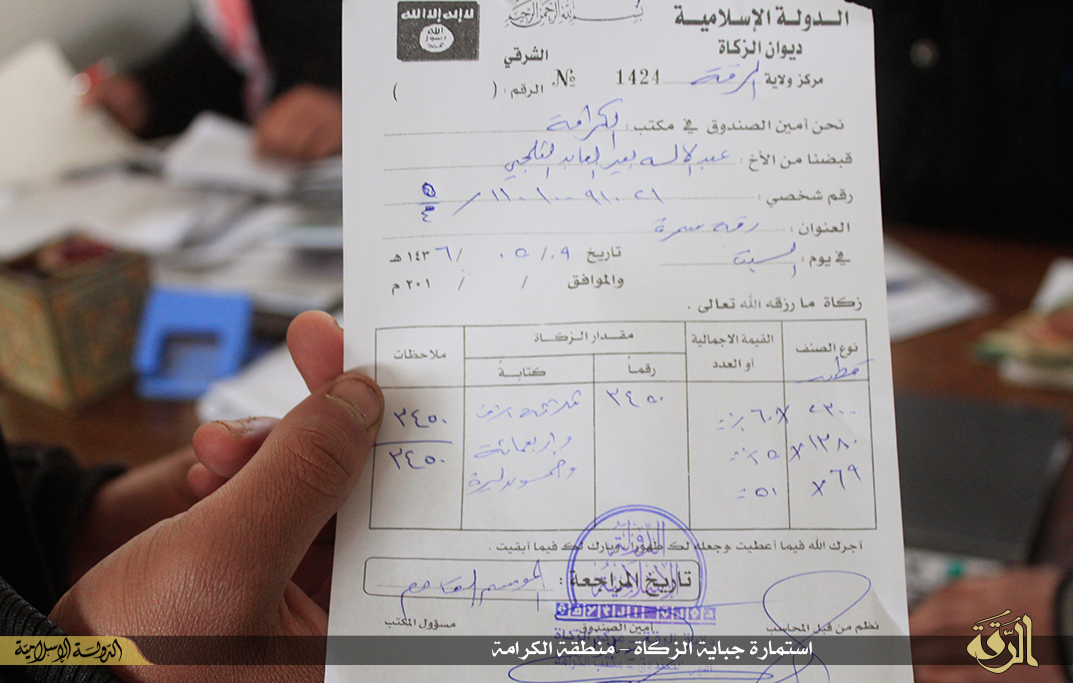 لا إله إلا الله
الله رسول محمد
بسم الله الرحمن الرحيم
الدولة الإسلامية
ديوان الزكاة
مركز ولاية الرقة
الشرقي
№ 1424
الرقم : ( )
نحن أمين الصندوق في مكتب : الكرامة
قبضنا من الأخ : عبد الاله
رقم شخصي :
العنوان : رقة سمرة
في يوم : السبت تاريخ ٠٩ / ٠٥ / ١٤٣٦ هـ
والموافق / / ٢٠١ م
زكاة ما رزقه الله تعالى .
نوع الصنف القيمة الاجمالية أو العدد مقدار الزكاة ملاحظات
رقماً كتابةً
قطن
٢٣٠٠ x ٦٠ ٣٤٥٠ ثلاثة الاف ٣٤٥٠
١٣٨٠ x ٥ واربعمائة ٣٤٥٠
٦٩ x ٥١ وخمسون ليرة
أجرك الله فيما أعطيت وجعله لك طهورا وبارك لك فيما أبقيت .
تاريخ المراجعة : الموسم القادم
نظم من قبل المحاسب أمين الصندوق مسؤول المكتب
الدولة الإسلامية
استمارة جباية الزكاة – منطقة الكرامة
الرقة
الدولة الإسلامية